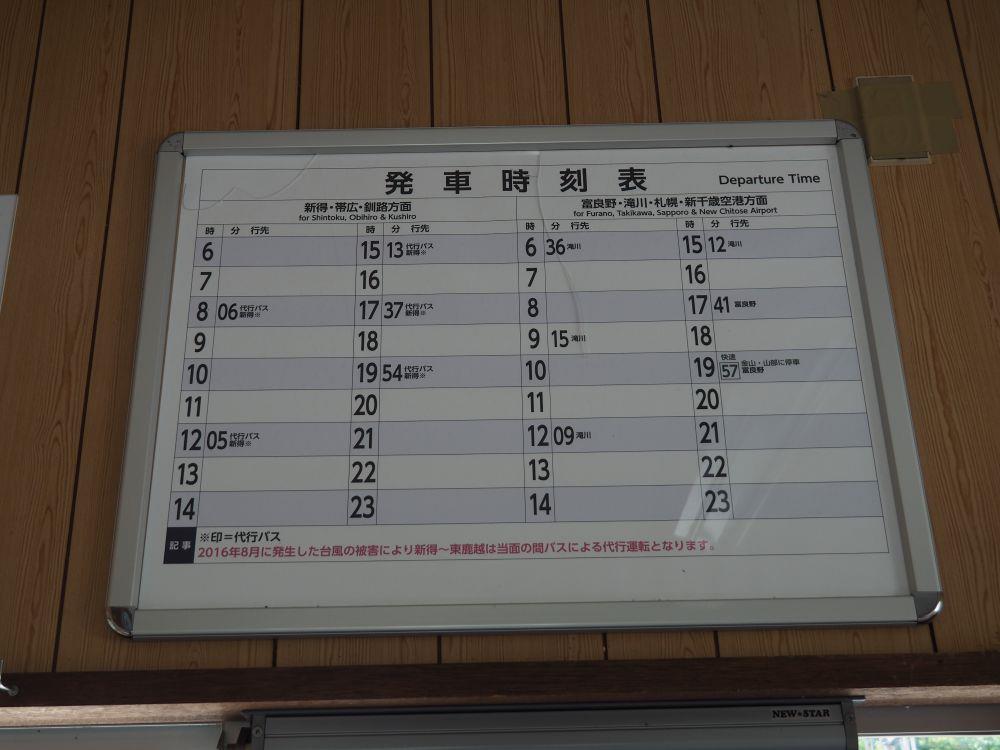 発車時刻表
Departure Time
新得・帯広・釧路方面
for Shintoku, Obihiro & Kushiro
富良野・滝川・札幌・新千歳空港方面
for Furano, Takikawa, Sapporo & New Chitose Airport
時 分 行先 時 分 行先 時 分 行先 時 分 行先
6 15 13 代行バス 新得※ 6 36 滝川 15 12 滝川
7 16 7 16
8 06 代行バス 新得※ 17 37 代行バス 新得※ 8 17 41 富良野
9 18 9 15 滝川 18
10 19 54 代行バス 新得※ 10 19 快速 57 金山・山部に停車 富良野
11 20 11 20
12 05 代行バス 新得※ 21 12 09 滝川 21
13 22 13 22
14 23 14 23
記事
※印=代行バス
2016年8月に発生した台風の被害により新得~東鹿越は当面の間バスによる代行運転となります。
NEW★STAR